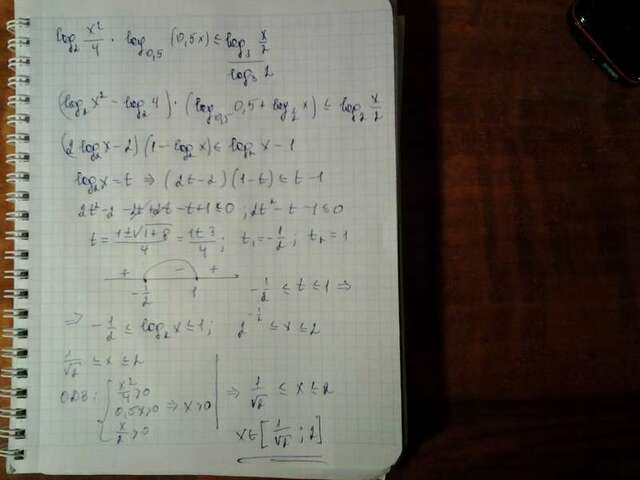 log₂ x²/4 · log₀,₅ (0,5x) ≤ log₃ x/2 / log₃ 2
(log₂ x² − log₂ 4) · (log₀,₅ 0,5 + log_½ x) ≤ log₂ x/2
(2 log₂ x − 2)(1 − log₂ x) ≤ log₂ x − 1
log₂ x = t ⇒ (2t − 2)(1 − t) ≤ t − 1
t = (1 ± √(1+8))/4 = (1 ± 3)/4 ; t₁ = −1/2 ; t₂ = 1
+ − +
−1/2 1 −1/2 ≤ t ≤ 1 ⇒
⇒ −1/2 ≤ log₂ x ≤ 1; 2^(−1/2) ≤ x ≤ 2
1/√2 ≤ x ≤ 2
ОДЗ: { x²/4 > 0
0,5x > 0 ⇒ x > 0 ⇒ 1/√2 ≤ x ≤ 2
x/2 > 0
x ∈ [1/√2 ; 2]